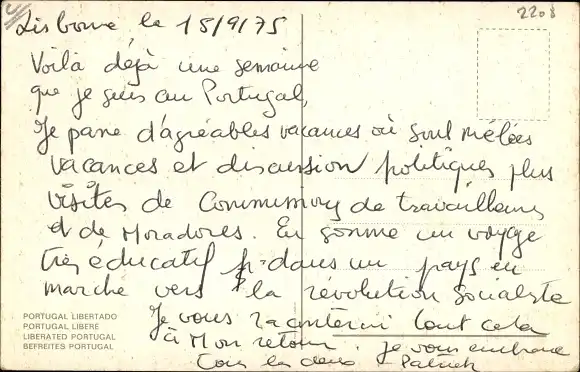 2208
Lisbonne le 18/9/75
Voilà déjà une semaine
que je suis au Portugal,
Je passe d'agréables vacances où sont mêlées
vacances et discussion politiques plus
visites de Commissions de travailleurs
et de Moradores. En somme un voyage
très éducatif dans un pays en
marche vers la révolution socialiste
Je vous raconterai tout cela
à mon retour. Je vous embrasse
Tous les deux Patrick
PORTUGAL LIBERTADO
PORTUGAL LIBERÉ
LIBERATED PORTUGAL
BEFREITES PORTUGAL